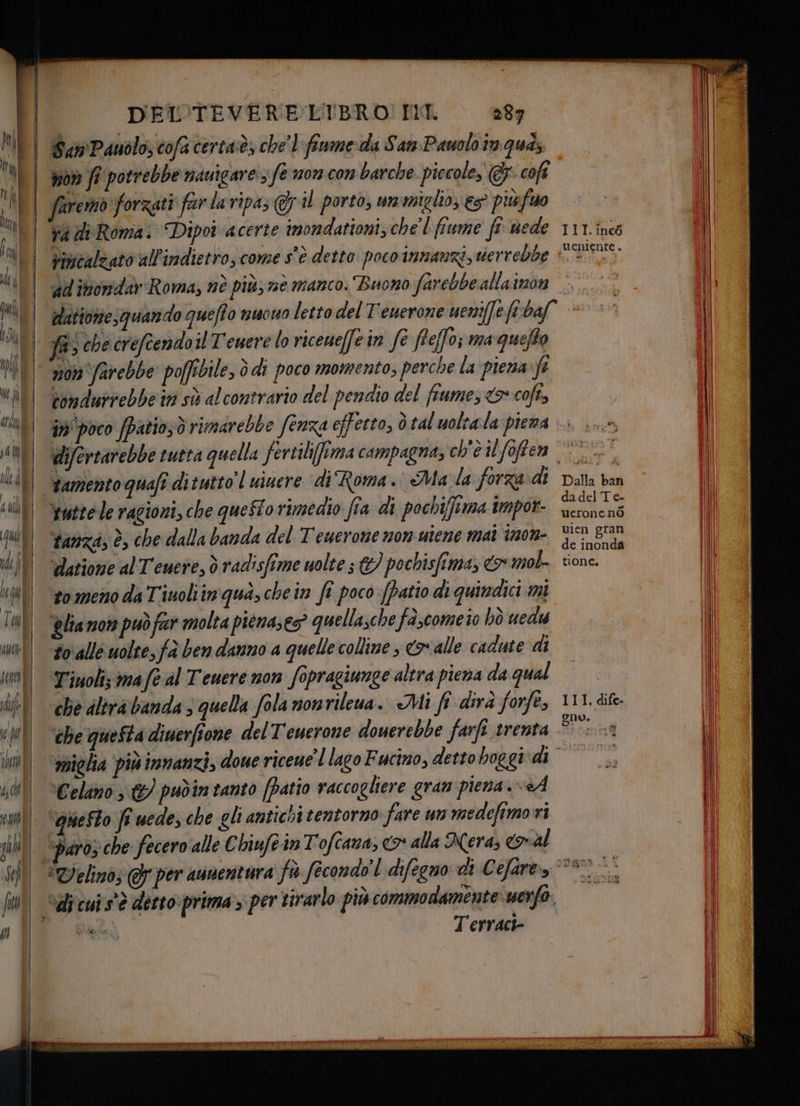 DEL TEVERE LIBRO III. 287
San Pauolo, cosa certa è, che'l fiume da San Pauolo in quà,
non si potrebbe nauigare, se non con barche piccole, & cosi
saremo forzati far la ripa, & il porto, un miglio, es più suo
ra di Roma. Dipoi acerte inondationi, che'l fiume si uede
rincalzato all'indietro, come s'è detto poco innanzi, uerrebbe
ad inondar Roma, nè più, nè manco. Buono sarebbe alla inon
datione, quando questo nuouo letto del Teuerone uenisse sì bas
so, che crescendo il Teuere lo riceuesse in se stesso; ma questo
non sarebbe possibile, ò di poco momento, perche la piena si
condurrebbe in sù al contrario del pendio del fiume, & cosi,
in poco spatio, ò rimarebbe senza effetto, ò tal uolta la piena
disertarebbe tutta quella fertilissima campagna, ch'è il sosten
tamento quasi di tutto'l uiuere di Roma. Ma la forza di
tutte le ragioni, che questo rimedio sia di pochissima impor-
tanza, è, che dalla banda del Teuerone non uiene mai inon-
datione al Teuere, ò radissime uolte; & pochissima, & mol-
to meno da Tiuoli in quà, che in sì poco spatio di quindici mi
glia non può far molta piena, es quella, che fà, come io hò uedu
to alle uolte, fà ben danno a quelle colline, & alle cadute di
Tiuoli; ma se al Teuere non sopragiunge altra piena da qual
che altra banda, quella sola non rileua. Mi si dirà forse,
che questa diuersione del Teuerone douerebbe farsi trenta
miglia più innanzi, doue riceue'l lago Fucino, detto hoggi di
Celano, & può in tanto spatio raccogliere gran piena. A
questo si uede, che gli antichi tentorno fare un medesimo ri
paro, che fecero alle Chiuse in Toscana, & alla Nera, & al
Velino; & per auuentura fù secondo'l disegno di Cesare,
di cui s'è detto prima, per tirarlo più commodamente uerso
Terraci-
III. incō
ueniente.
Dalla ban
da del Te-
uerone nō
uien gran
de inonda
tione.
III. dise-
gno.